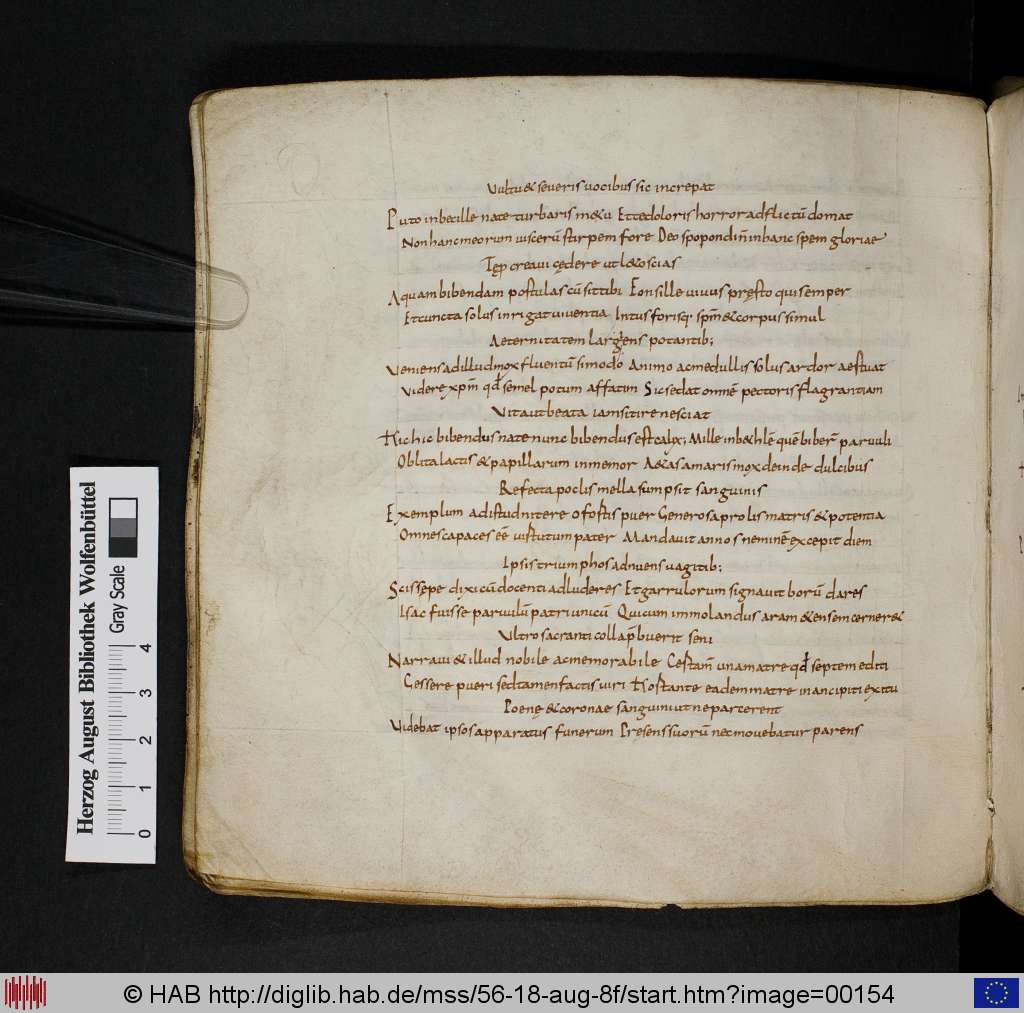 Vultu & severis uocibus sic increpat
Puto inbecille nate turbaris m&u Et te doloris horror adflictū domat
Non hanc meorum uiscerū stirpem fore Deo spopondi ñ in hanc spem gloriae
Tęp creaui cędere ut l&o scias
Aquam bibendam postulas cū sit tibi Fons ille uiuus pręsto qui semper
Et cuncta solus inrigat uiuentia Intus forisq; spm̄ & corpus simul
Aeternitatem largiens potantib;
Veniens ad illud mox fluentū si modo Animo ac medullis solus ardor aestuat
Videre xpm̄ qđ semel potum affatim Sic sedat omnē pectoris flagrantiam
Vita ut beata iam sitire nesciat
Hic hic bibendus nate nunc bibendus est calyx; Mille in b&hlē quē biber̄ paruuli
Oblita lactis & papillarum inmemor A&as amaris mox deinde dulcibus
Refecta poclis mella sumpsit sanguinis
Exemplum ad istud nitere o fostis puer Generosa prolis matris & potentia
Omnes capaces eē uistutum pater Mandauit annos neminē excepit diem
Ipsis triumphos adnuens uagitib;
Scis sępe dixi cū docenti adluderes Et garrulorum signa uit borū dares
Isac fuisse paruulū patri unicū Qui cum immolandus aram & ensem cerner&
Vltro sacranti colla p̄buerit seni
Narraui & illud nobile ac memorabile Cestam̄ una matre qđ septem editi
Gessere pueri sed tamen factis uiri Hostante eadem matre in ancipiti exitu
Poenę & coronae sanguini ut ne parcerent
Videbat ipsos apparatus funerum Presens suorū nec mouebatur parens
Herzog August Bibliothek Wolfenbüttel
Gray Scale
0 1 2 3 4
© HAB http://diglib.hab.de/mss/56-18-aug-8f/start.htm?image=00154